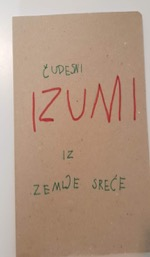 ČUDESNI
IZUMI
IZ
ZEMLJE SREĆE